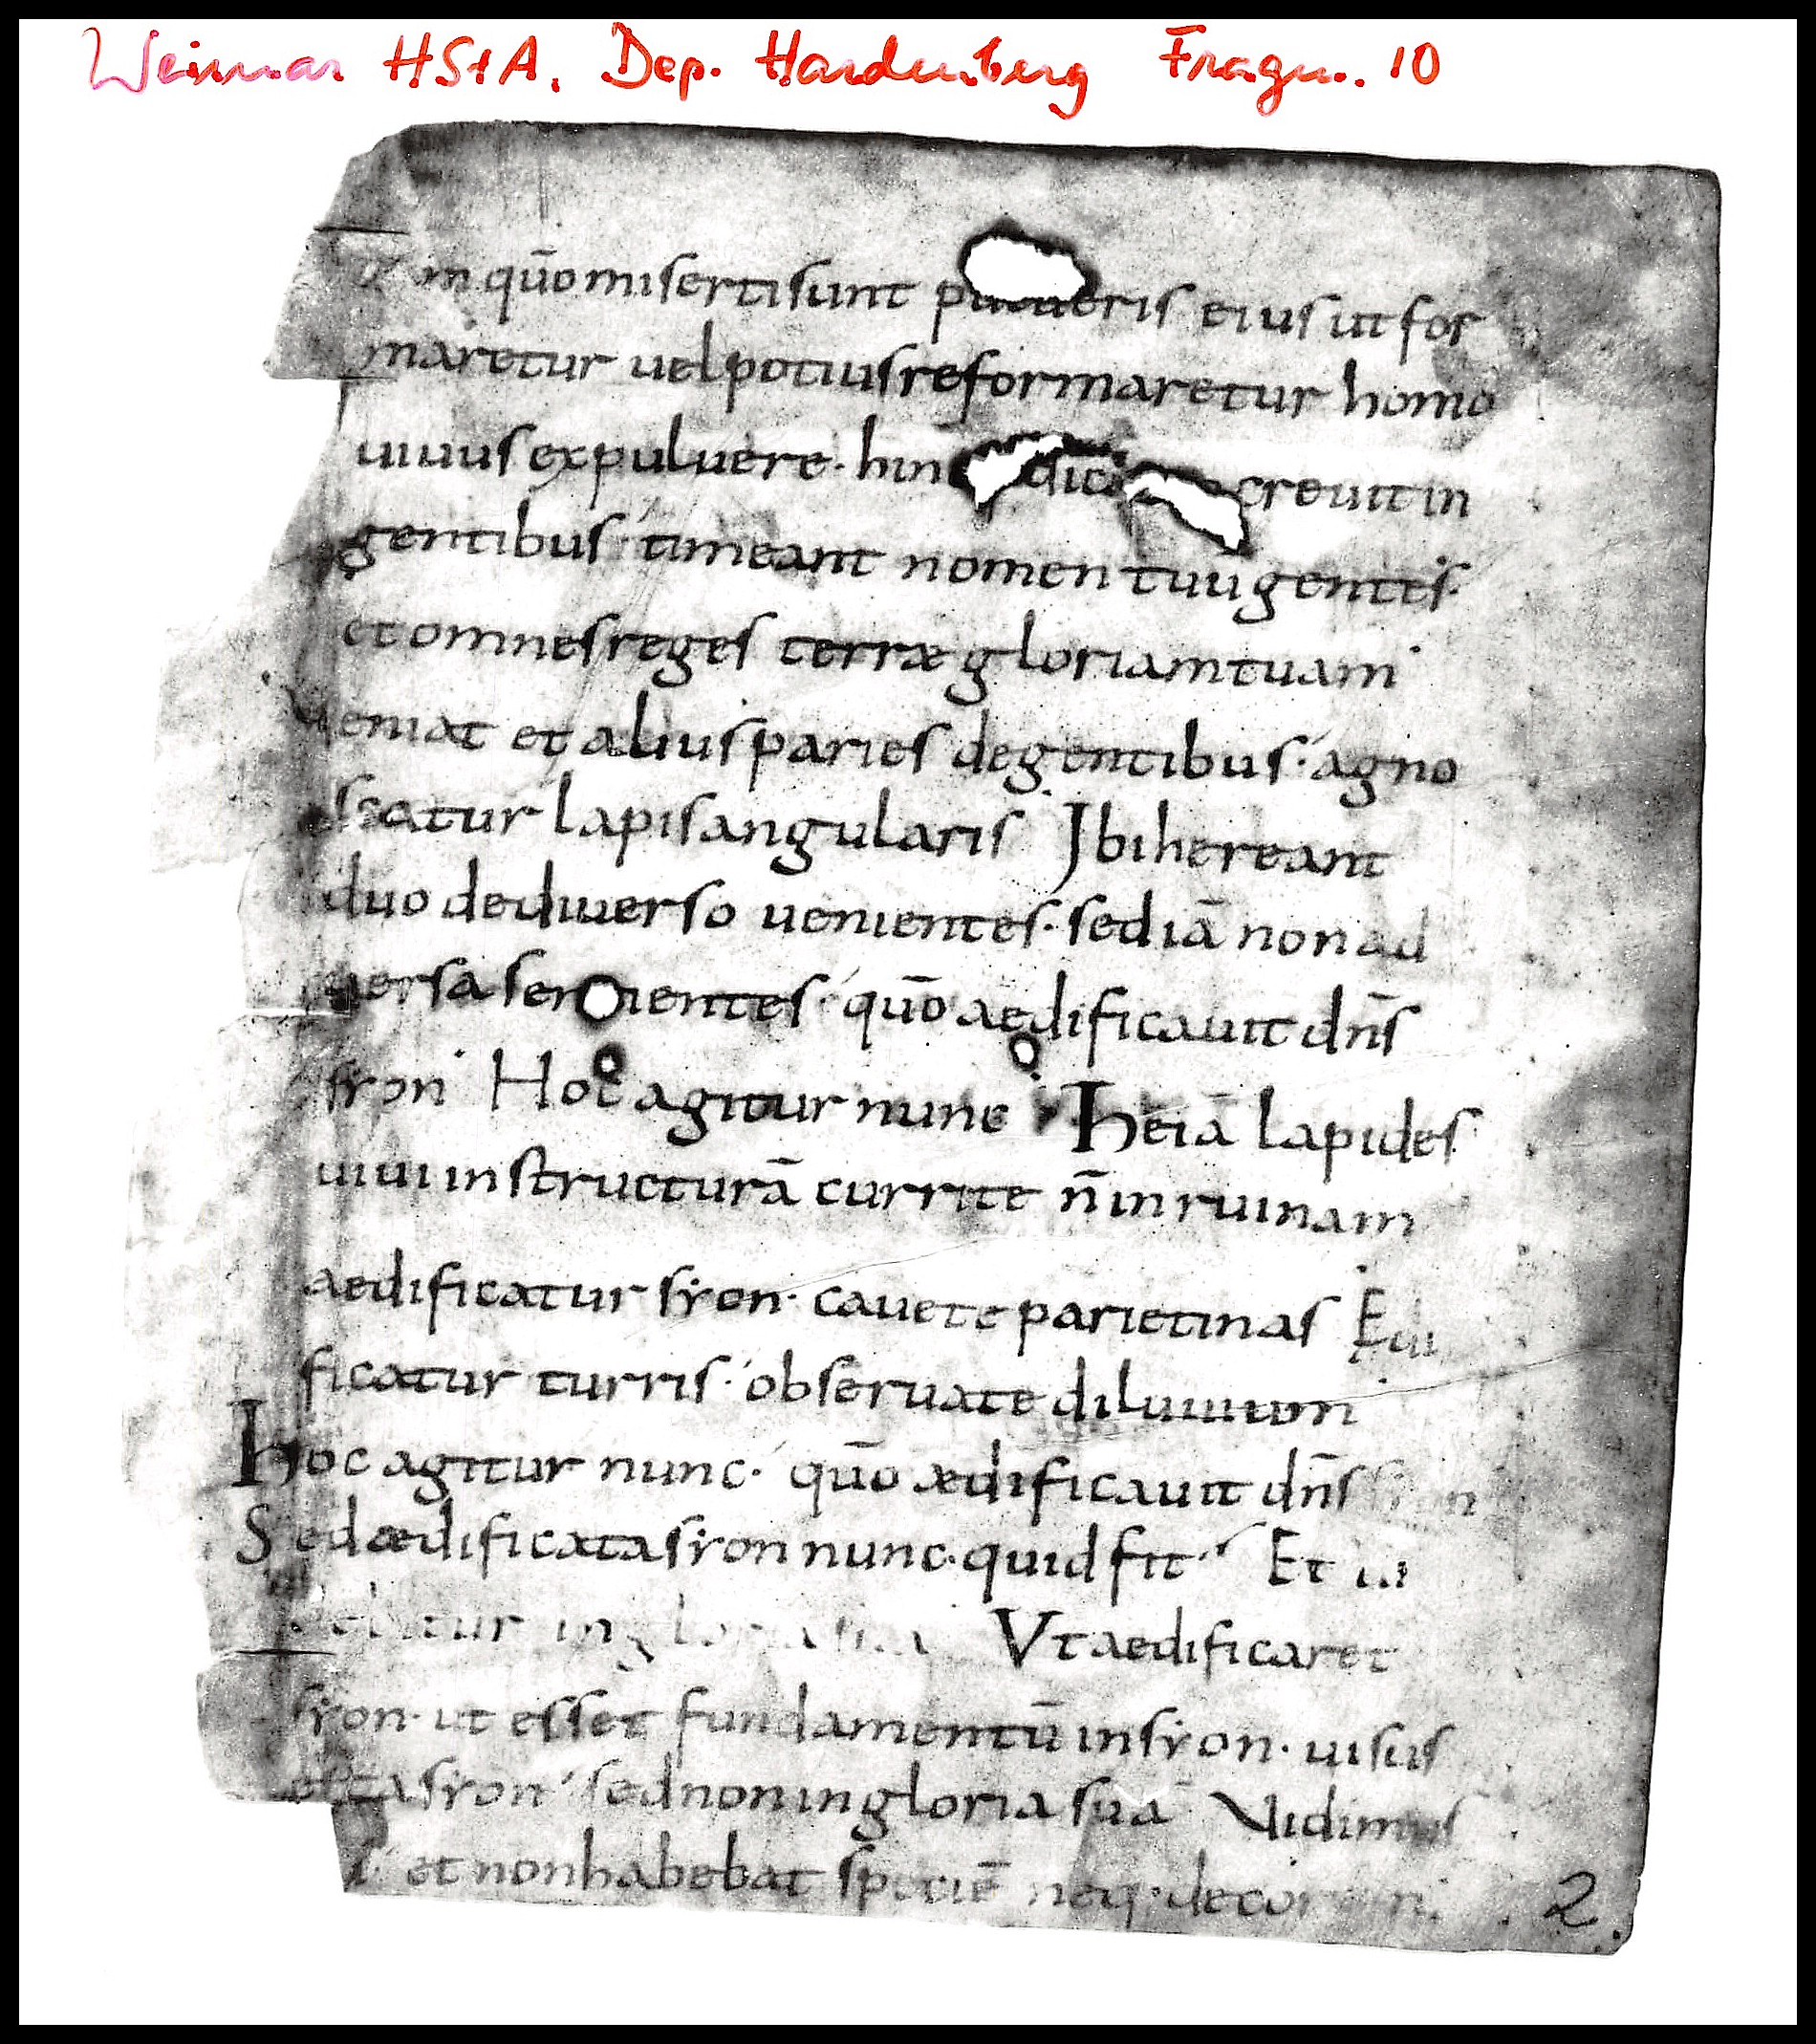 Weimar HStA. Dep. Hardenberg Fragm. 10
quō miserti sunt pulueris eius ut for
maretur uel potius reformaretur homo
uiuus ex puluere· hin dic creuit in
gentibus timeant nomen tuū gentes·
et omnes reges terræ gloriam tuam
ueniat et alius paries de gentibus· agno
scatur lapis angularis Ibi hereant
duo de diuerso uenientes· sed iā non ad
uersa sentientes· quō aedificauit dn̄s
syon Hoc agitur nunc heiā lapides
uiui in structurā currite n̄ in ruinam
aedificatur syon· cauete parietinas Ędi
ficatur turris· obseruate diluuium
hoc agitur nunc· quō ædificauit dn̄s syon
Sed ædificata syon nunc· quid fit Et ui
debitur in gloria sua Vt aedificaret
syon· ut esset fundamentū in syon· uisus
est a syon sed non in gloria suā Vidimus
et non habebat speciē neq· decorem
2